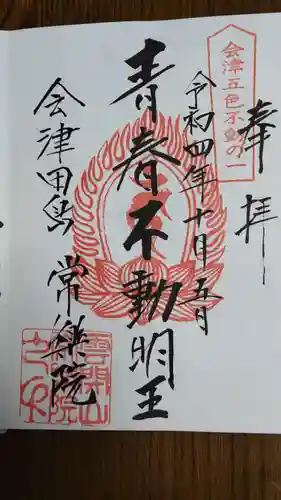 奉拝
会津五色不動の一
令和四年十月五日
青春不動明王
会津田島 常楽院